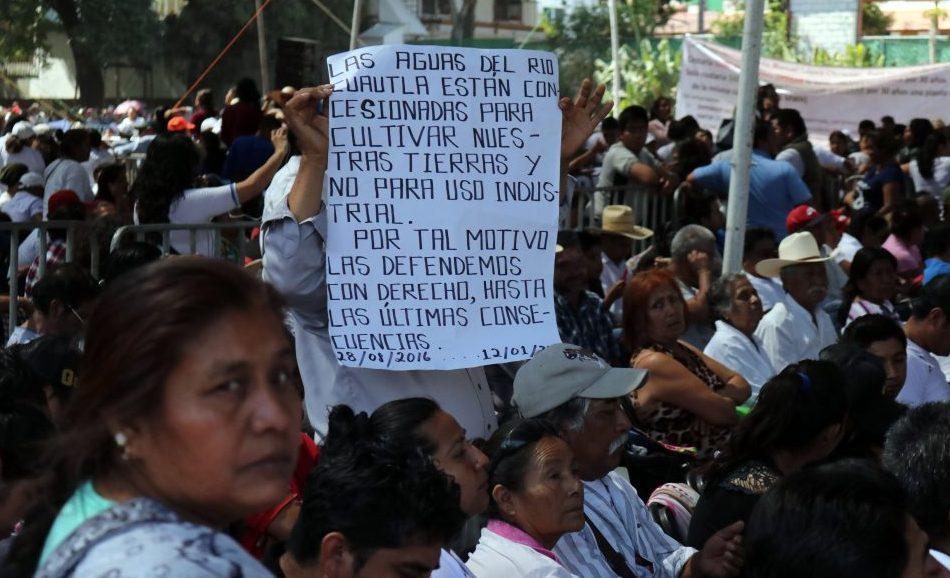 LAS AGUAS DEL RIO
CUAUTLA ESTÁN CON
CESIONADAS PARA
CULTIVAR NUES-
TRAS TIERRAS Y
NO PARA USO INDUS-
TRIAL.
POR TAL MOTIVO
LAS DEFENDEMOS
CON DERECHO, HASTA
LAS ÚLTIMAS CONSE-
CUENCIAS.
28/08/2016 .... 12/01/